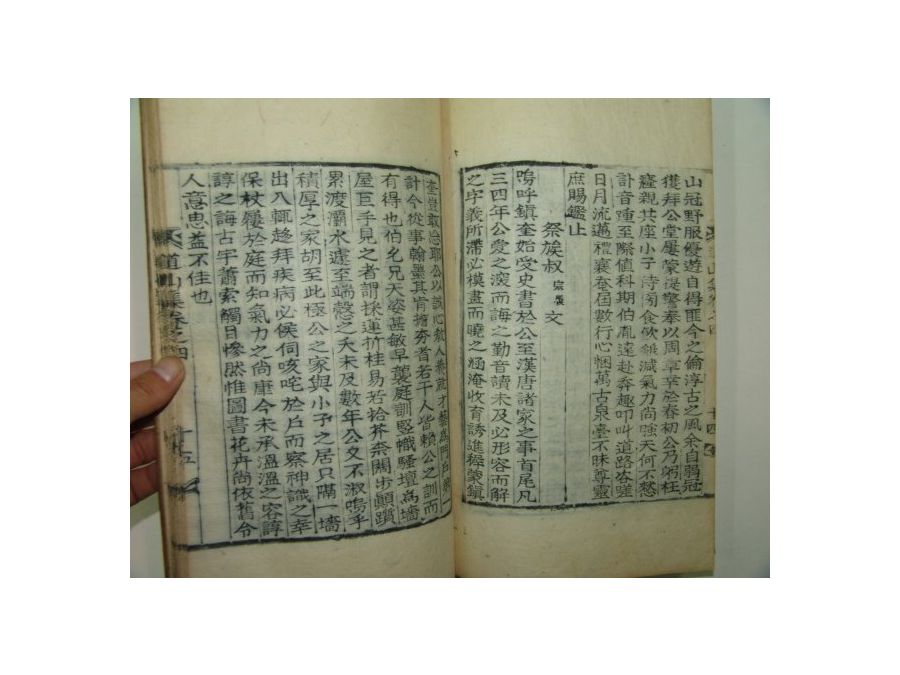 山冠野服優遊自得匪今之倫淳古之風余自弱冠
獲拜公堂屢蒙提擊奉以周章幸於春初公乃躬枉
癃親共座小子侍
飮
減氣力尙強天何不慭
訃音踵至際値科期伯胤遠赴奔趣叩叫道路咨嗟
日月流邁禮襄奄屆數行心悃萬古泉臺不昧尊靈
庶賜鑑止
祭族叔
文
嗚呼鎭奎始受史書於公至漢唐諸家之事首尾凡
三四年公愛之深而誨之勤音讀未及必形容而解
之字義所滯必模畫而曉之涵淹收育誘進穉蒙鎭
奎豈敢忘耶公以誠心敎人
計今從事翰墨其肯擔夯者若干人皆賴公之訓而
有得也伯允兄天姿甚敏早襲庭訓堅幟騷壇高墻
屋巨手見之者謂採蓮折桂易若拾芥柰闊步顚躓
累渡灞水遽至端慤之夭未及數年公又不淑嗚乎
積厚之家胡至此極公之家與小子之居只隔一墻
出入輒趍拜疾病必候伺咳咤於戶而察神識之幸
保杖屨於庭而知氣力之尙康今未承溫溫之容諄
諄之誨古宇蕭索觸目慘然惟圖書花卉尙依舊令
人意思益不佳也
道山集卷之四
十五
十四